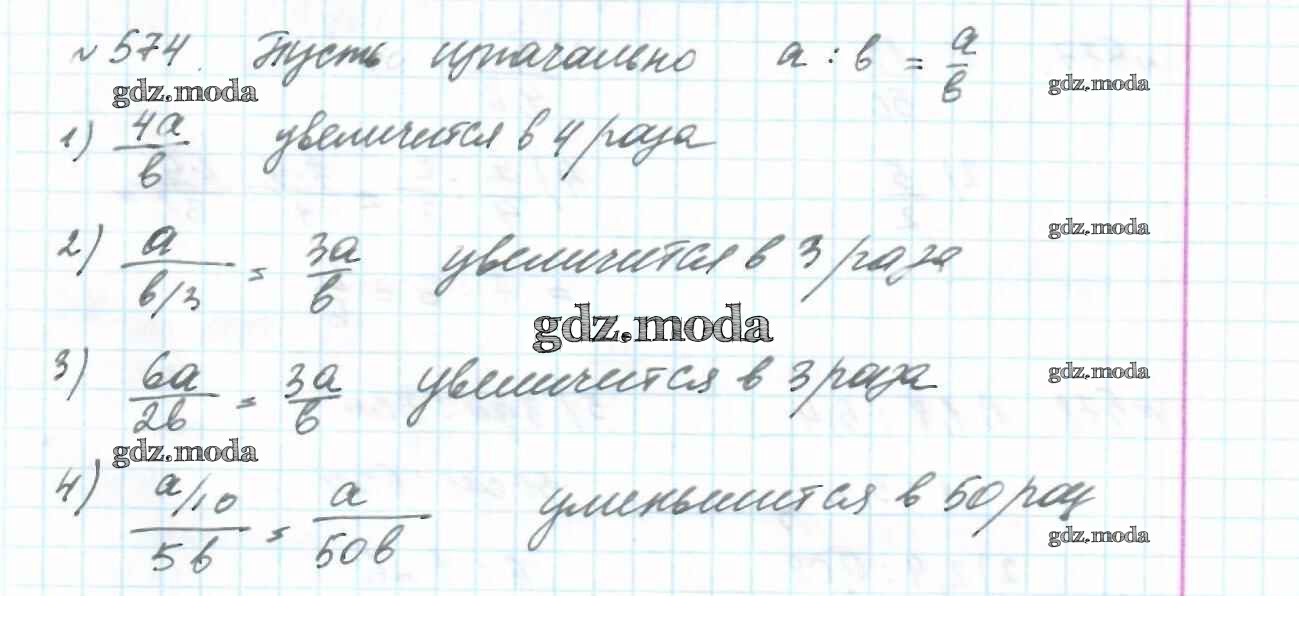 №574. Пусть изначально a : b = a/b
gdz.moda gdz.moda
1) 4a/b увеличится в 4 раза
gdz.moda
2) a/(b/3) = 3a/b увеличится в 3 раза
gdz.moda
3) 6a/2b = 3a/b увеличится в 3 раза
gdz.moda
gdz.moda
4) (a/10)/5b = a/50b уменьшится в 50 раз
gdz.moda